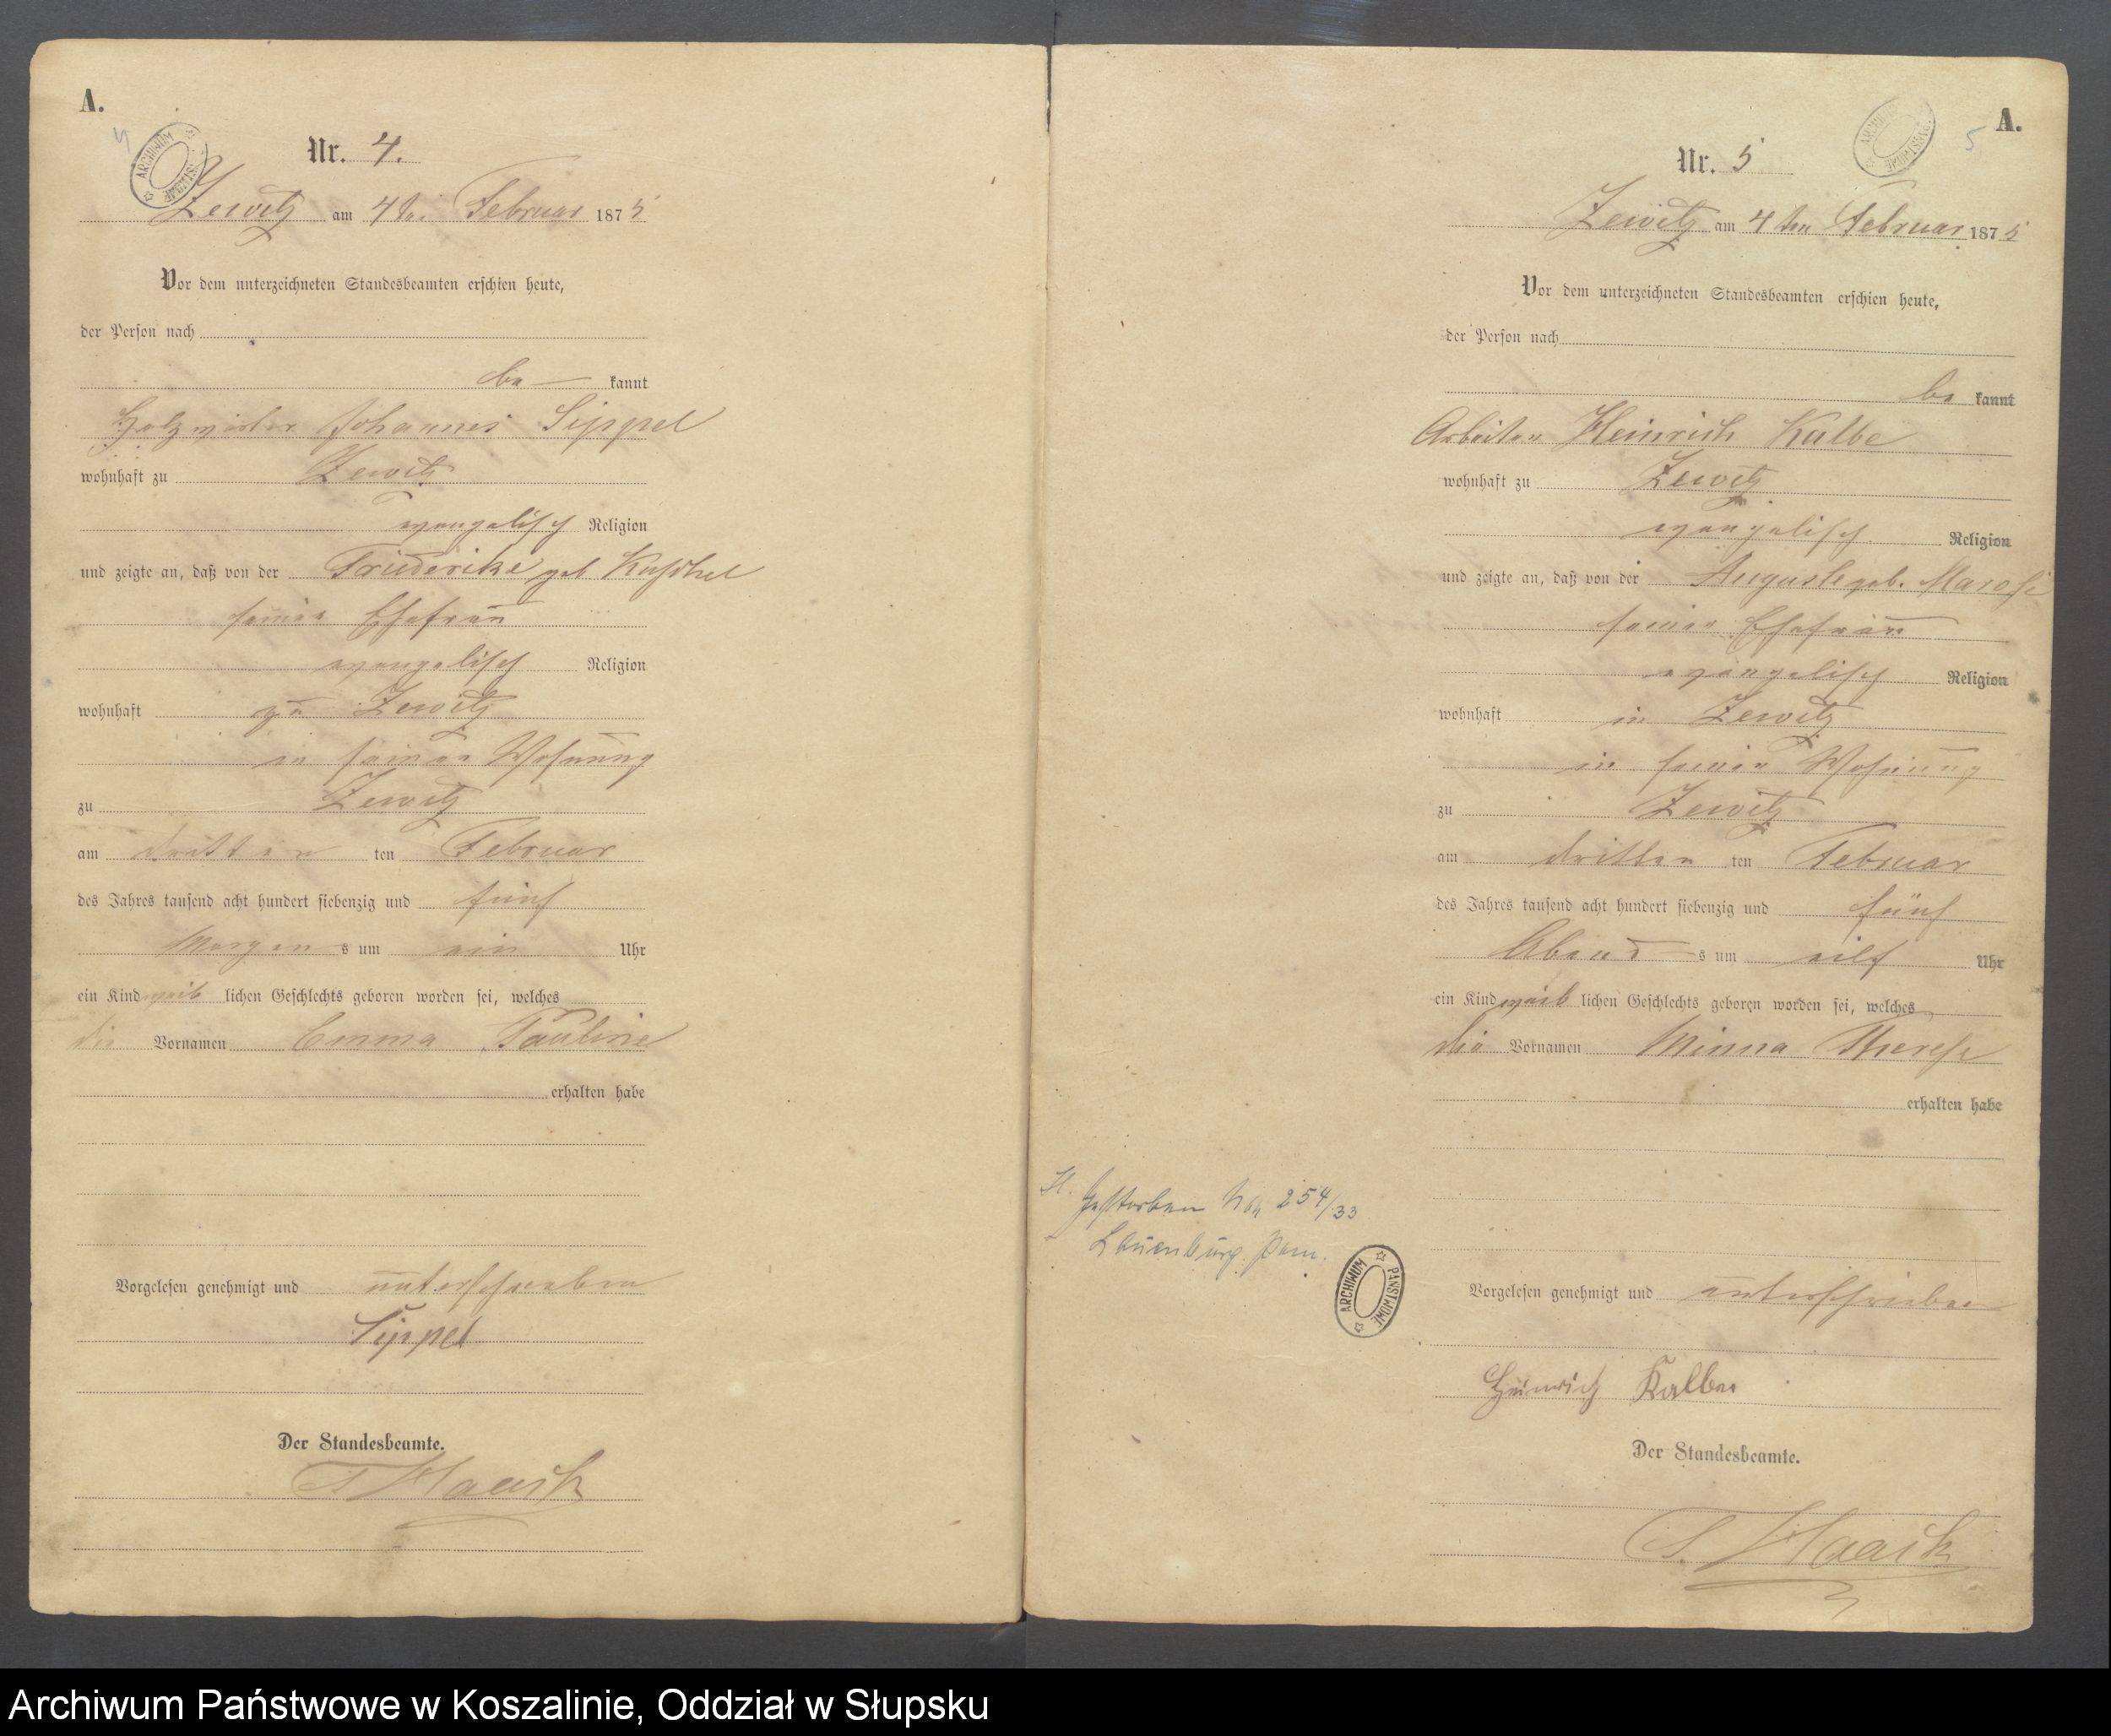 A.
4
ARCHIWUM PAŃSTWOWE
Nr. 4.
Zewitz am 4ten Februar 1875
Vor dem unterzeichneten Standesbeamten erschien heute,
der Person nach
be kannt
Johannes Sippel
wohnhaft zu Zewitz
evangelisch Religion
und zeigte an, daß von der Friederike geb
seiner Ehefrau
evangelisch Religion
wohnhaft zu Zewitz
in seiner Wohnung
zu Zewitz
am dritten ten Februar
des Jahres tausend acht hundert siebenzig und fünf
Morgen s um ein Uhr
ein Kind weib lichen Geschlechts geboren worden sei, welches
die Vornamen Emma Pauline
erhalten habe
Vorgelesen genehmigt und unterschrieben
Sippel
Der Standesbeamte.
Haack
A.
5
ARCHIWUM PAŃSTWOWE
Nr. 5
Zewitz am 4ten Februar 1875
Vor dem unterzeichneten Standesbeamten erschien heute,
der Person nach
be kannt
Arbeiter Heinrich Kalbe
wohnhaft zu Zewitz
evangelisch Religion
und zeigte an, daß von der Auguste geb.
seiner Ehefrau
evangelisch Religion
wohnhaft in Zewitz
in seiner Wohnung
zu Zewitz
am dritten ten Februar
des Jahres tausend acht hundert siebenzig und fünf
Abend s um eilf Uhr
ein Kind weib lichen Geschlechts geboren worden sei, welches
die Vornamen Minna Therese
erhalten habe
H. Gestorben No 254/33
Lauenburg Pom.
ARCHIWUM PAŃSTWOWE
Vorgelesen genehmigt und unterschrieben
Heinrich Kalbe
Der Standesbeamte.
Haack
Archiwum Państwowe w Koszalinie, Oddział w Słupsku